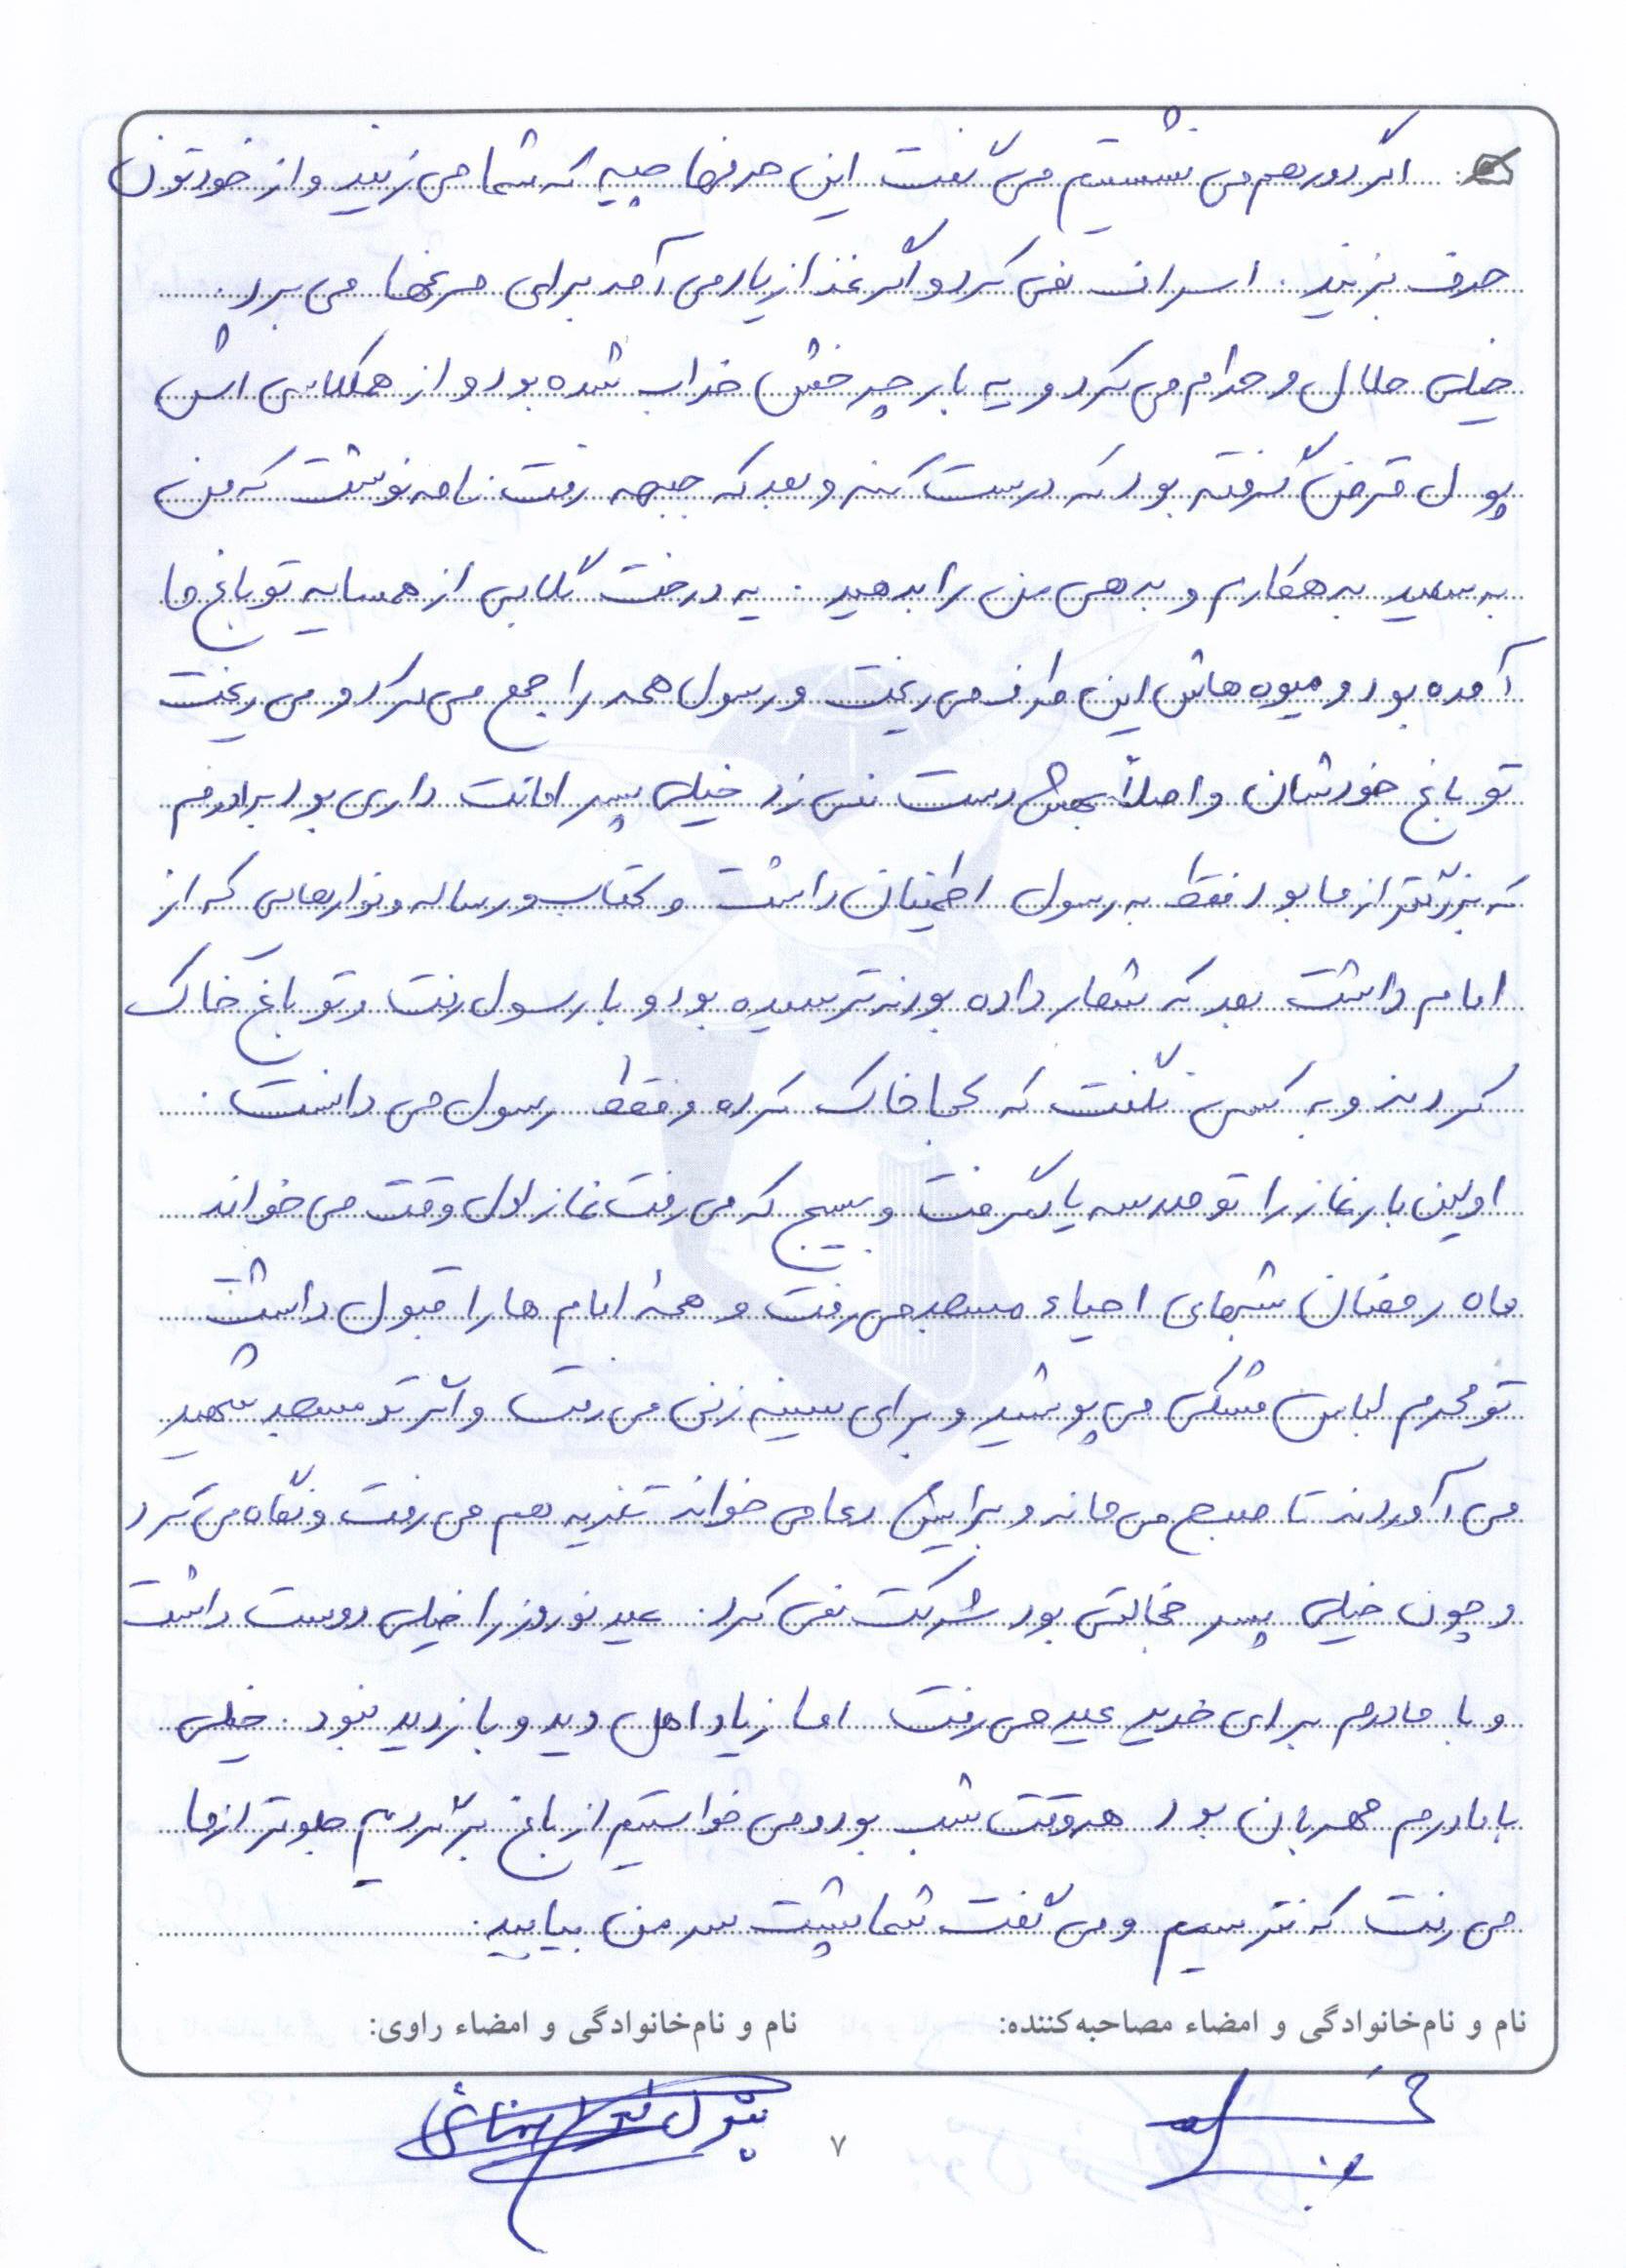 اگر دور هم می نشستیم می گفت این حرفها چیه که شما می زنید و از خودتون
حرف بزنید. اسراف نمی کرد و اگر غذا زیاد می آمد برای مرغها می برد.
خیلی حلال و حرام می کرد و یه بار چرخش خراب شده بود و از همکلاسی اش
پول قرض گرفته بود که درست کنه و بعد که جبهه رفت نامه نوشت که من
به سعید بدهکارم و بدهی من را بدهید. یه درخت گلابی از همسایه تو باغ ما
آمده بود و میوه هاش این طرف می ریخت و رسول همه را جمع می کرد و می ریخت
تو باغ خودشان و اصلاً بهش دست نمی زد خیلی پسر امانت داری بود برادرم
که بزرگتر از ما بود فقط به رسول اطمینان داشت و کتاب و رساله و نوارهایی که از
امام داشت بعد که شعار داده بودند ترسیده بود و با رسول رفت و تو باغ خاک
کردند و به کسی نگفت که کجا خاک کرده و فقط رسول می دانست.
اولین بار نماز را تو مدرسه یاد گرفت و بسیج که می رفت نماز اول وقت می خواند
ماه رمضان شبهای احیاء مسجد می رفت و همهٔ امام ها را قبول داشت
تو محرم لباس مشکی می پوشید و برای سینه زنی می رفت و اگر تو مسجد شهید
می آوردند تا صبح می ماند و برایش دعا می خواند تعزیه هم می رفت و نگاه می کرد
و چون خیلی پسر خجالتی بود شرکت نمی کرد. عید نوروز را خیلی دوست داشت
و با مادرم برای خرید عید می رفت اما زیاد اهل دید و بازدید نبود. خیلی
با مادرم مهربان بود هر وقت شب بود و می خواستیم از باغ برگردیم جلوتر از ما
می رفت که نترسیم و می گفت شما پشت سر من بیایید.
نام و نام‌خانوادگی و امضاء مصاحبه‌کننده:
نام و نام‌خانوادگی و امضاء راوی:
۷